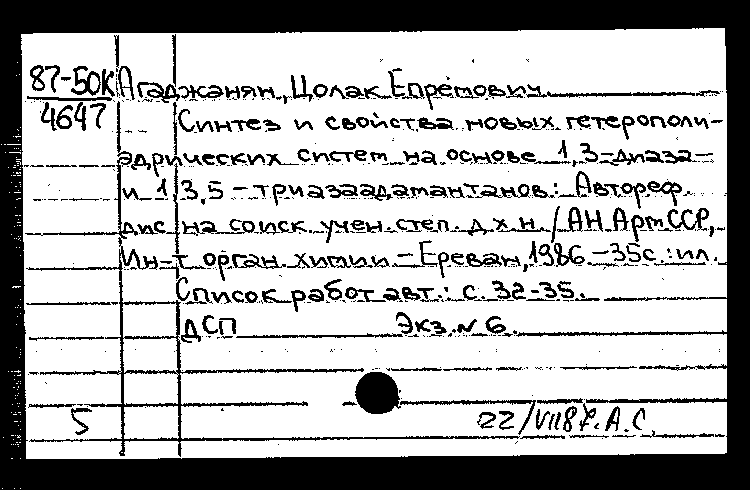 87-50К Агаджанян, Цолак Епремович.
4647 Синтез и свойства новых гетерополи-
эдрических систем на основе 1,3-диаза-
и 1,3,5-триазаадамантанов: Автореф.
дис на соиск. учен. степ. д.х.н. / АН АрмССР,
Ин-т орган. химии. - Ереван, 1986. - 35с.: ил.
Список работ авт.: с. 32-35.
ДСП Экз. № 6.
5 22/VII87. А.С.